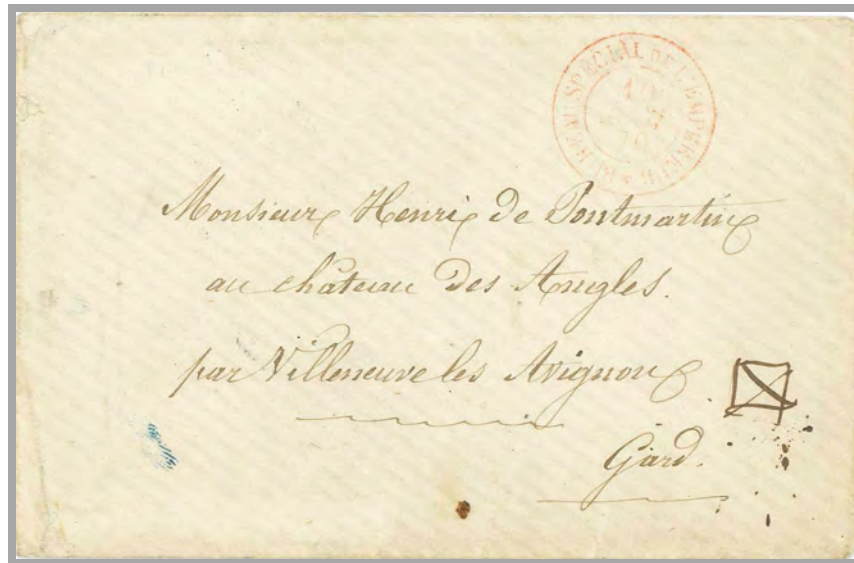 BUREAU SPÉCIAL DE L'EMPEREUR
Monsieur Henri de Pontmartin
au château des Angles.
par Villeneuve les Avignon
Gard.